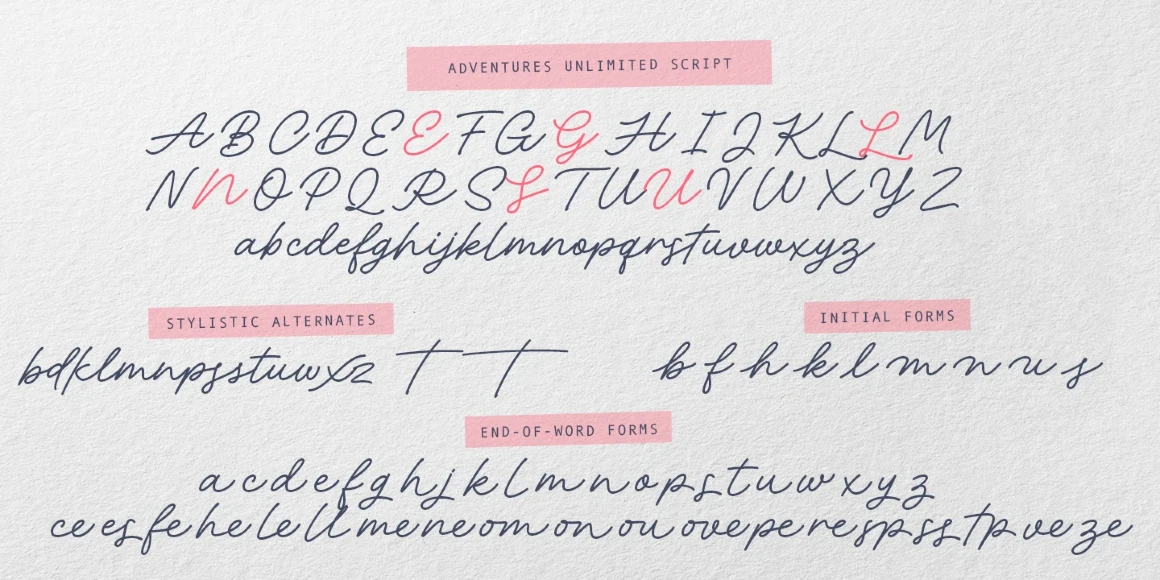 ADVENTURES UNLIMITED SCRIPT
ABCDEEFGGHIJKLLM
NNOPQRSSTUUVWXYZ
abcdefghijklmnopqrstuvwxyz
STYLISTIC ALTERNATES
INITIAL FORMS
bdklmnpsstuwxz T T
b f h k l m n u s
END-OF-WORD FORMS
a c d e f g h j k l m n o p s t u w x y z
ce es fe he le ll me ne om on ou ov e pe re sp ss tp ve ze